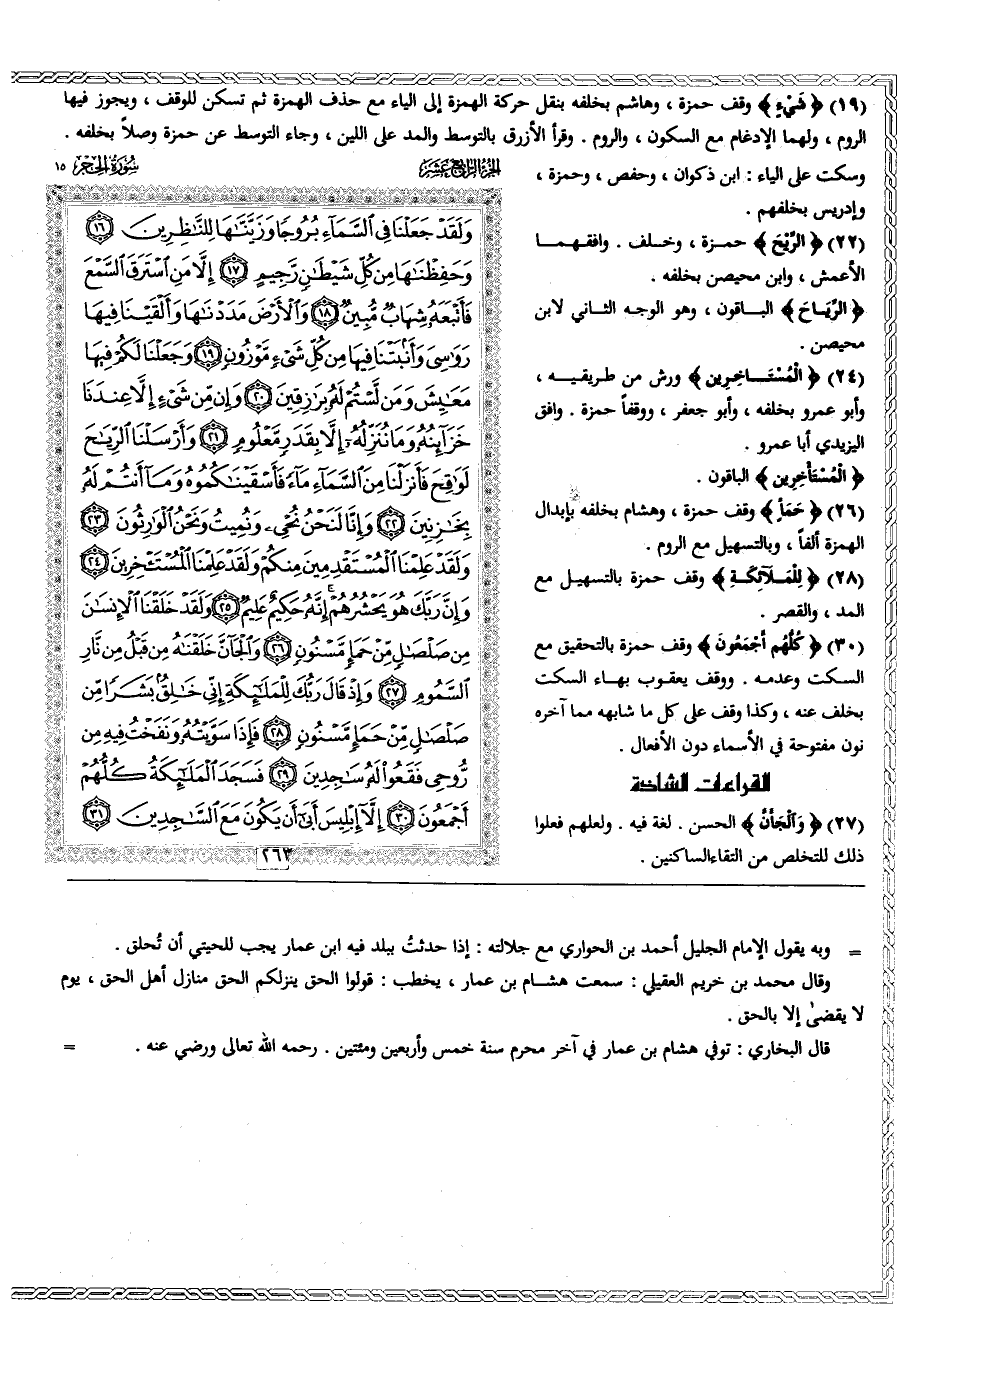 (١٩) ﴿ شَيْءٍ ﴾ وقف حمزة ، وهاشم بخلفه بنقل حركة الهمزة إلى الياء مع حذف الهمزة ثم تسكن للوقف ، ويجوز فيها
الروم ، ولهما الإدغام مع السكون ، والروم . وقرأ الأزرق بالتوسط والمد على اللين ، وجاء التوسط عن حمزة وصلاً بخلفه .
وسكت على الياء : ابن ذكوان ، وحفص ، وحمزة ،
وإدريس بخلفهم .
(٢٢) ﴿ الرِّيْحَ ﴾ حمزة ، وخلف . وافقهما
الأعمش ، وابن محيصن بخلفه .
﴿ الرِّيَاحَ ﴾ الباقون ، وهو الوجه الثاني لابن
محيصن .
(٢٤) ﴿ الْمُسْتَاخِرِين ﴾ ورش من طريقيه ،
وأبو عمرو بخلفه ، وأبو جعفر ، ووقفاً حمزة . وافق
اليزيدي أبا عمرو .
﴿ الْمُسْتَأْخِرِين ﴾ الباقون .
(٢٦) ﴿ حَمَأٍ ﴾ وقف حمزة ، وهشام بخلفه بإبدال
الهمزة ألفاً ، وبالتسهيل مع الروم .
(٢٨) ﴿ لِلْمَلآئِكَةِ ﴾ وقف حمزة بالتسهيل مع
المد ، والقصر .
(٣٠) ﴿ كُلُّهُم أَجْمَعُونَ ﴾ وقف حمزة بالتحقيق مع
السكت وعدمه . ووقف يعقوب بهاء السكت
بخلف عنه ، وكذا وقف على كل ما شابهه مما آخره
نون مفتوحة في الأسماء دون الأفعال .
القراءات الشاذة
(٢٧) ﴿ وَالْجَأْنَّ ﴾ الحسن . لغة فيه . ولعلهم فعلوا
ذلك للتخلص من التقاء الساكنين .
الجزء الرابع عشر
سورة الحجر ١٥
وَلَقَدْ جَعَلْنَا فِي ٱلسَّمَآءِ بُرُوجًا وَزَيَّنَّٰهَا لِلنَّٰظِرِينَ ١٦
وَحَفِظْنَٰهَا مِن كُلِّ شَيْطَٰنٍ رَّجِيمٍ ١٧ إِلَّا مَنِ ٱسْتَرَقَ ٱلسَّمْعَ
فَأَتْبَعَهُۥ شِهَابٌ مُّبِينٌ ١٨ وَٱلْأَرْضَ مَدَدْنَٰهَا وَأَلْقَيْنَا فِيهَا
رَوَٰسِيَ وَأَنۢبَتْنَا فِيهَا مِن كُلِّ شَيْءٍ مَّوْزُونٍ ١٩ وَجَعَلْنَا لَكُمْ فِيهَا
مَعَٰيِشَ وَمَن لَّسْتُمْ لَهُۥ بِرَٰزِقِينَ ٢٠ وَإِن مِّن شَيْءٍ إِلَّا عِندَنَا
خَزَآئِنُهُۥ وَمَا نُنَزِّلُهُۥٓ إِلَّا بِقَدَرٍ مَّعْلُومٍ ٢١ وَأَرْسَلْنَا ٱلرِّيَٰحَ
لَوَٰقِحَ فَأَنزَلْنَا مِنَ ٱلسَّمَآءِ مَآءً فَأَسْقَيْنَٰكُمُوهُ وَمَآ أَنتُمْ لَهُۥ
بِخَٰزِنِينَ ٢٢ وَإِنَّا لَنَحْنُ نُحْيِۦ وَنُمِيتُ وَنَحْنُ ٱلْوَٰرِثُونَ ٢٣
وَلَقَدْ عَلِمْنَا ٱلْمُسْتَقْدِمِينَ مِنكُمْ وَلَقَدْ عَلِمْنَا ٱلْمُسْتَـْٔخِرِينَ ٢٤
وَإِنَّ رَبَّكَ هُوَ يَحْشُرُهُمْ ۚ إِنَّهُۥ حَكِيمٌ عَلِيمٌ ٢٥ وَلَقَدْ خَلَقْنَا ٱلْإِنسَٰنَ
مِن صَلْصَٰلٍ مِّنْ حَمَإٍ مَّسْنُونٍ ٢٦ وَٱلْجَآنَّ خَلَقْنَٰهُ مِن قَبْلُ مِن نَّارِ
ٱلسَّمُومِ ٢٧ وَإِذْ قَالَ رَبُّكَ لِلْمَلَٰٓئِكَةِ إِنِّي خَٰلِقٌۢ بَشَرًا مِّن
صَلْصَٰلٍ مِّنْ حَمَإٍ مَّسْنُونٍ ٢٨ فَإِذَا سَوَّيْتُهُۥ وَنَفَخْتُ فِيهِ مِن
رُّوحِي فَقَعُوا۟ لَهُۥ سَٰجِدِينَ ٢٩ فَسَجَدَ ٱلْمَلَٰٓئِكَةُ كُلُّهُمْ
أَجْمَعُونَ ٣٠ إِلَّآ إِبْلِيسَ أَبَىٰٓ أَن يَكُونَ مَعَ ٱلسَّٰجِدِينَ ٣١
٢٦٣
= وبه يقول الإمام الجليل أحمد بن الحواري مع جلالته : إذا حدثتُ ببلد فيه ابن عمار يجب للحيتي أن تُحلق .
وقال محمد بن خريم العقيلي : سمعت هشام بن عمار ، يخطب : قولوا الحق ينزلكم الحق منازل أهل الحق ، يوم
لا يقضىٰ إلا بالحق .
قال البخاري : توفي هشام بن عمار في آخر محرم سنة خمس وأربعين ومئتين . رحمه الله تعالى ورضي عنه . =